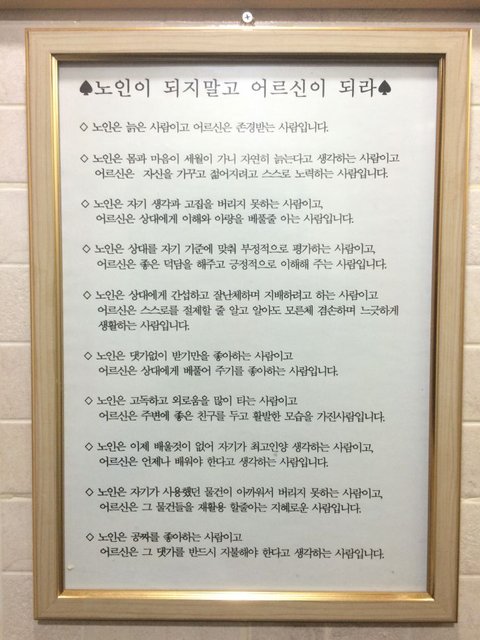 ♠노인이 되지말고 어르신이 되라♠
◇ 노인은 늙은 사람이고 어르신은 존경받는 사람입니다.
◇ 노인은 몸과 마음이 세월이 가니 자연히 늙는다고 생각하는 사람이고
어르신은 자신을 가꾸고 젊어지려고 스스로 노력하는 사람입니다.
◇ 노인은 자기 생각과 고집을 버리지 못하는 사람이고,
어르신은 상대에게 이해와 아량을 베풀줄 아는 사람입니다.
◇ 노인은 상대를 자기 기준에 맞춰 부정적으로 평가하는 사람이고,
어르신은 좋은 덕담을 해주고 긍정적으로 이해해 주는 사람입니다.
◇ 노인은 상대에게 간섭하고 잘난체하며 지배하려고 하는 사람이고
어르신은 스스로를 절제할 줄 알고 알아도 모른체 겸손하며 느긋하게
생활하는 사람입니다.
◇ 노인은 댓가없이 받기만을 좋아하는 사람이고
어르신은 상대에게 베풀어 주기를 좋아하는 사람입니다.
◇ 노인은 고독하고 외로움을 많이 타는 사람이고
어르신은 주변에 좋은 친구를 두고 활발한 모습을 가진사람입니다.
◇ 노인은 이제 배울것이 없어 자기가 최고인양 생각하는 사람이고,
어르신은 언제나 배워야 한다고 생각하는 사람입니다.
◇ 노인은 자기가 사용했던 물건이 아까워서 버리지 못하는 사람이고,
어르신은 그 물건들을 재활용 할줄아는 지혜로운 사람입니다.
◇ 노인은 공짜를 좋아하는 사람이고
어르신은 그 댓가를 반드시 지불해야 한다고 생각하는 사람입니다.